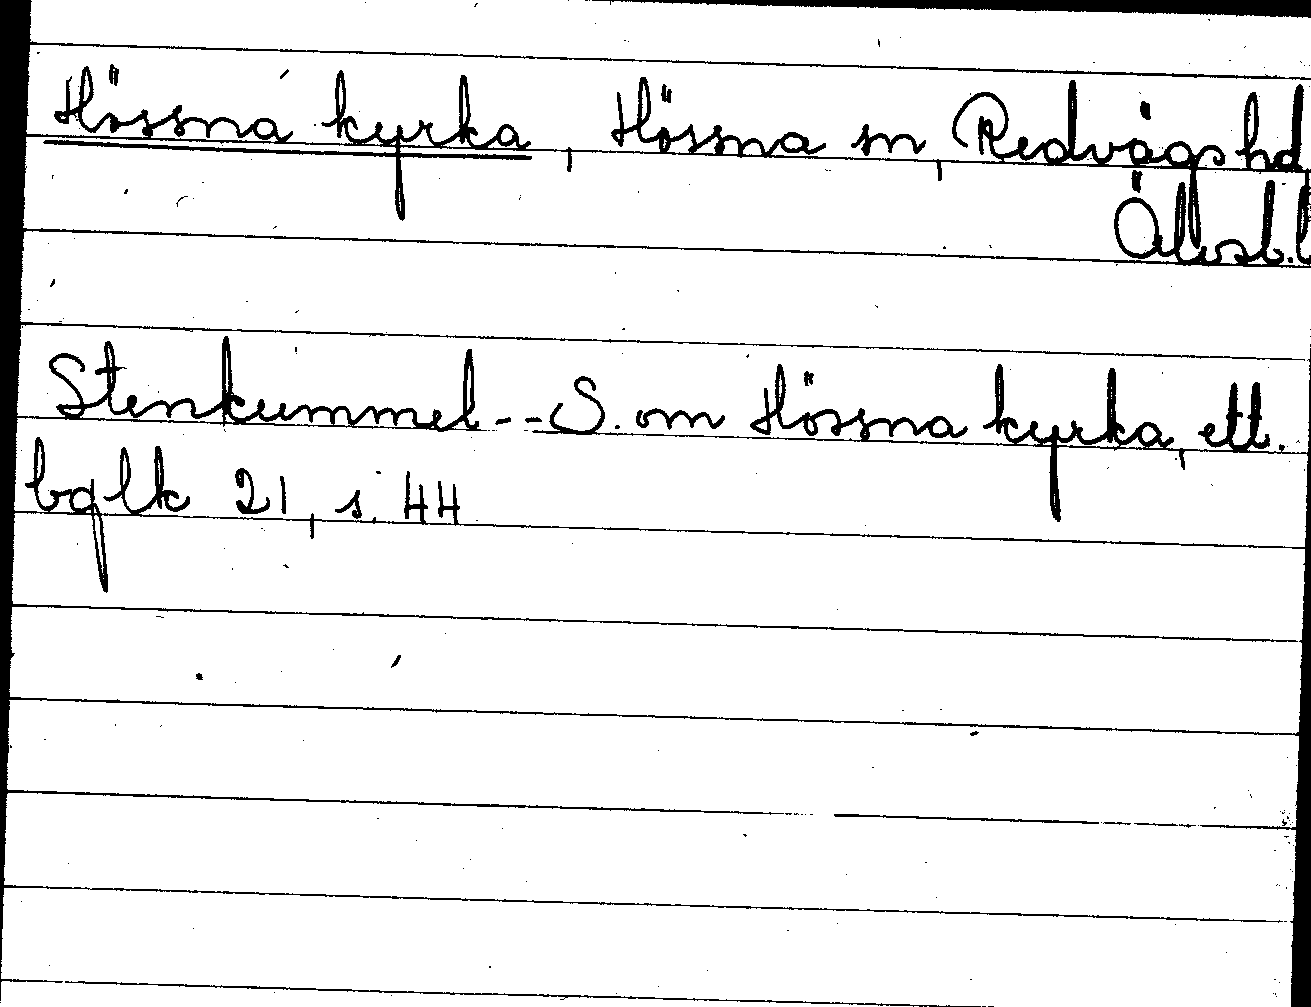 Hössna kyrka, Hössna sn, Redvägs hd
Älvsb. l
Stenkummel--S. om Hössna kyrka, ett.
bqlk 21, s. 44